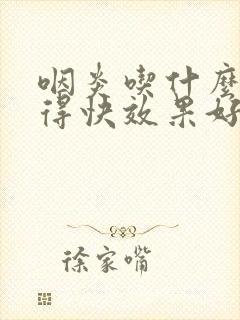 咽炎喫什麽
得快效果好
徐家嘴